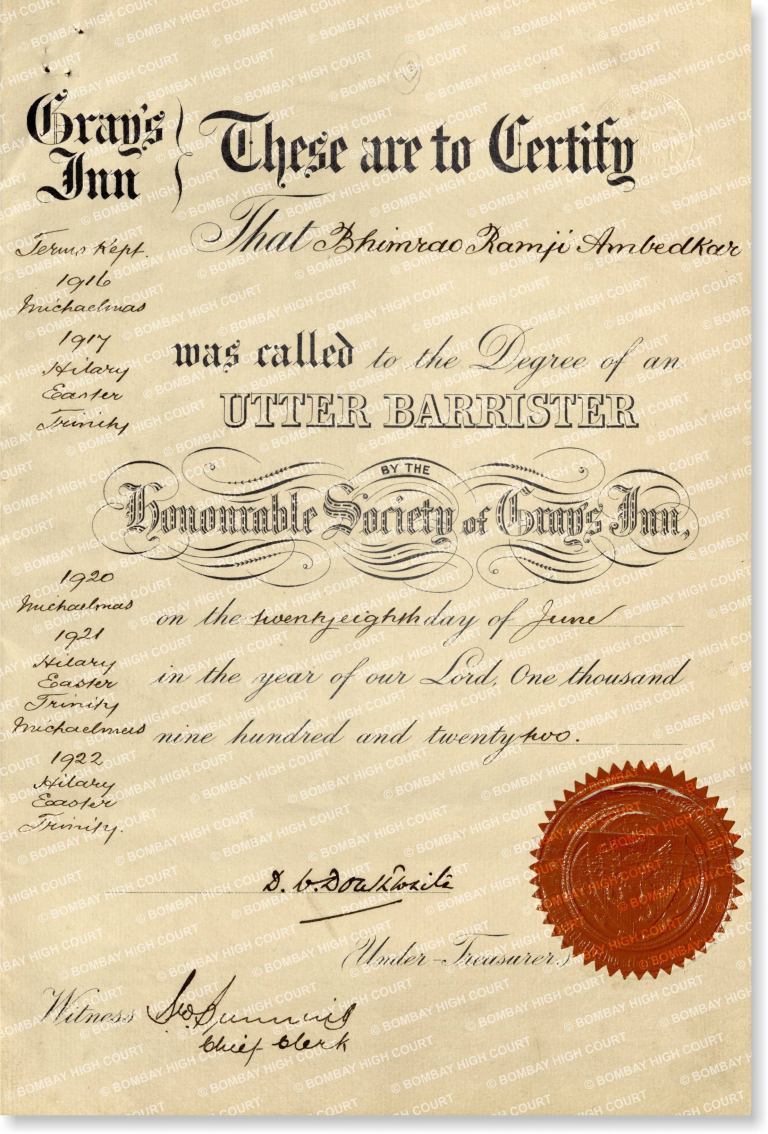 Gray's
Inn
These are to Certify
That Bhimrao Ramji Ambedkar
Terms Kept.
1916
Michaelmas
1917
Hilary
Easter
Trinity
was called to the Degree of an
UTTER BARRISTER
BY THE
Honourable Society of Gray's Inn,
1920
Michaelmas
1921
Hilary
Easter
Trinity
Michaelmas
1922
Hilary
Easter
Trinity.
on the twenty eighth day of June
in the year of our Lord, One thousand
nine hundred and twenty two.
D. W. Douthwaite
Under-Treasurer
Witness
Chief Clerk
© BOMBAY HIGH COURT